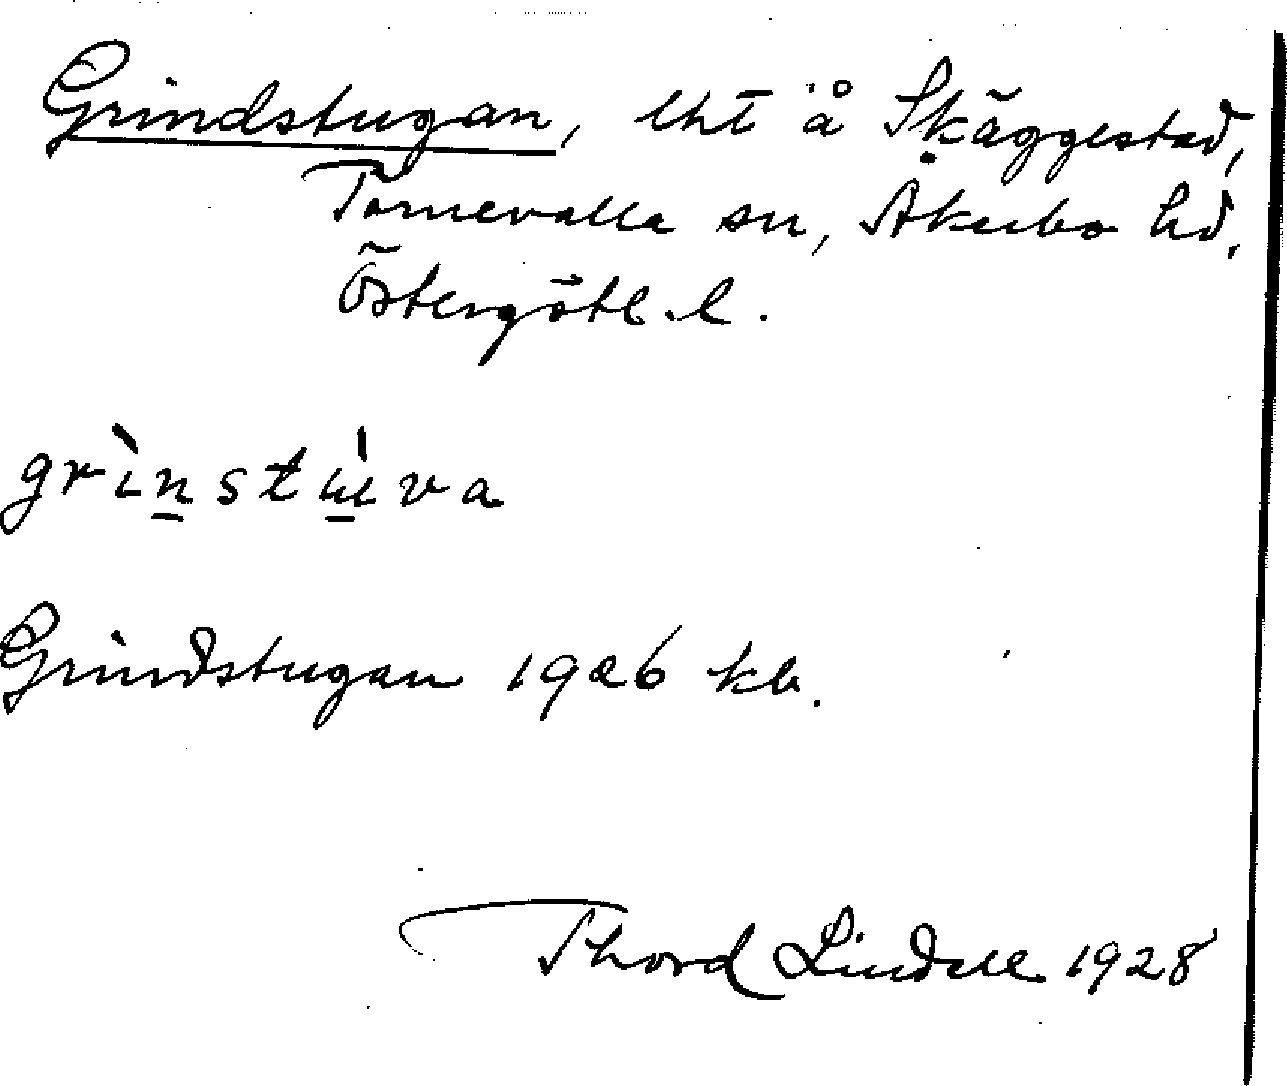 Grindstugan, lht å Skäggestad,
Törnevalla sn, Åkerbo hd,
Östergötl. l.
grìnstu̍va
Grindstugan 1926 kb.
Thord Lindell 1928